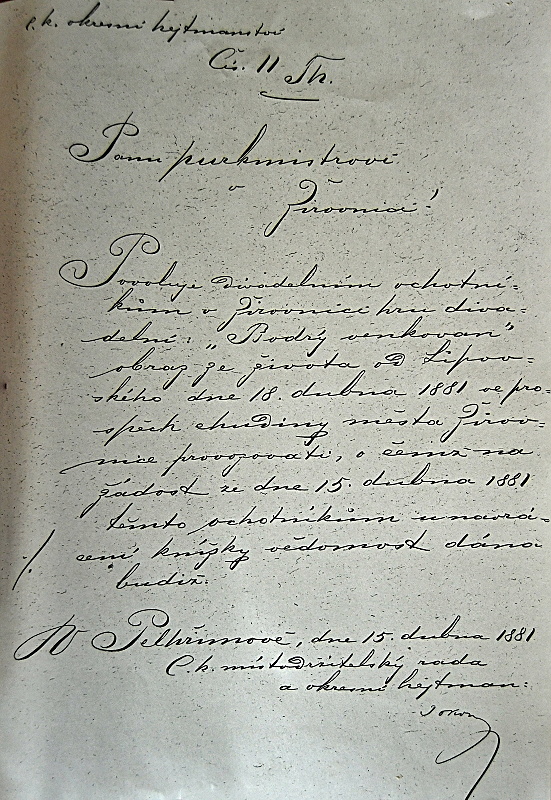 c. k. okresní hejtmanství
Čís. 11 Th.
Panu purkmistrovi
v
Žirovnici!
Povoluje divadelním ochotní-
kům v Žirovnici hru diva-
delní: „Bodrý venkovan"
obraz ze života od Lipov-
ského dne 18. dubna 1881 ve pro-
spěch chudiny města Žirov-
nice provozovati, o čemž na
žádost ze dne 15. dubna 1881
těmto ochotníkům u navrá-
/. cení knížky vědomost dána
budiž.
V Pelhřimově, dne 15. dubna 1881
C. k. místodržitelský rada
a okresní hejtman: